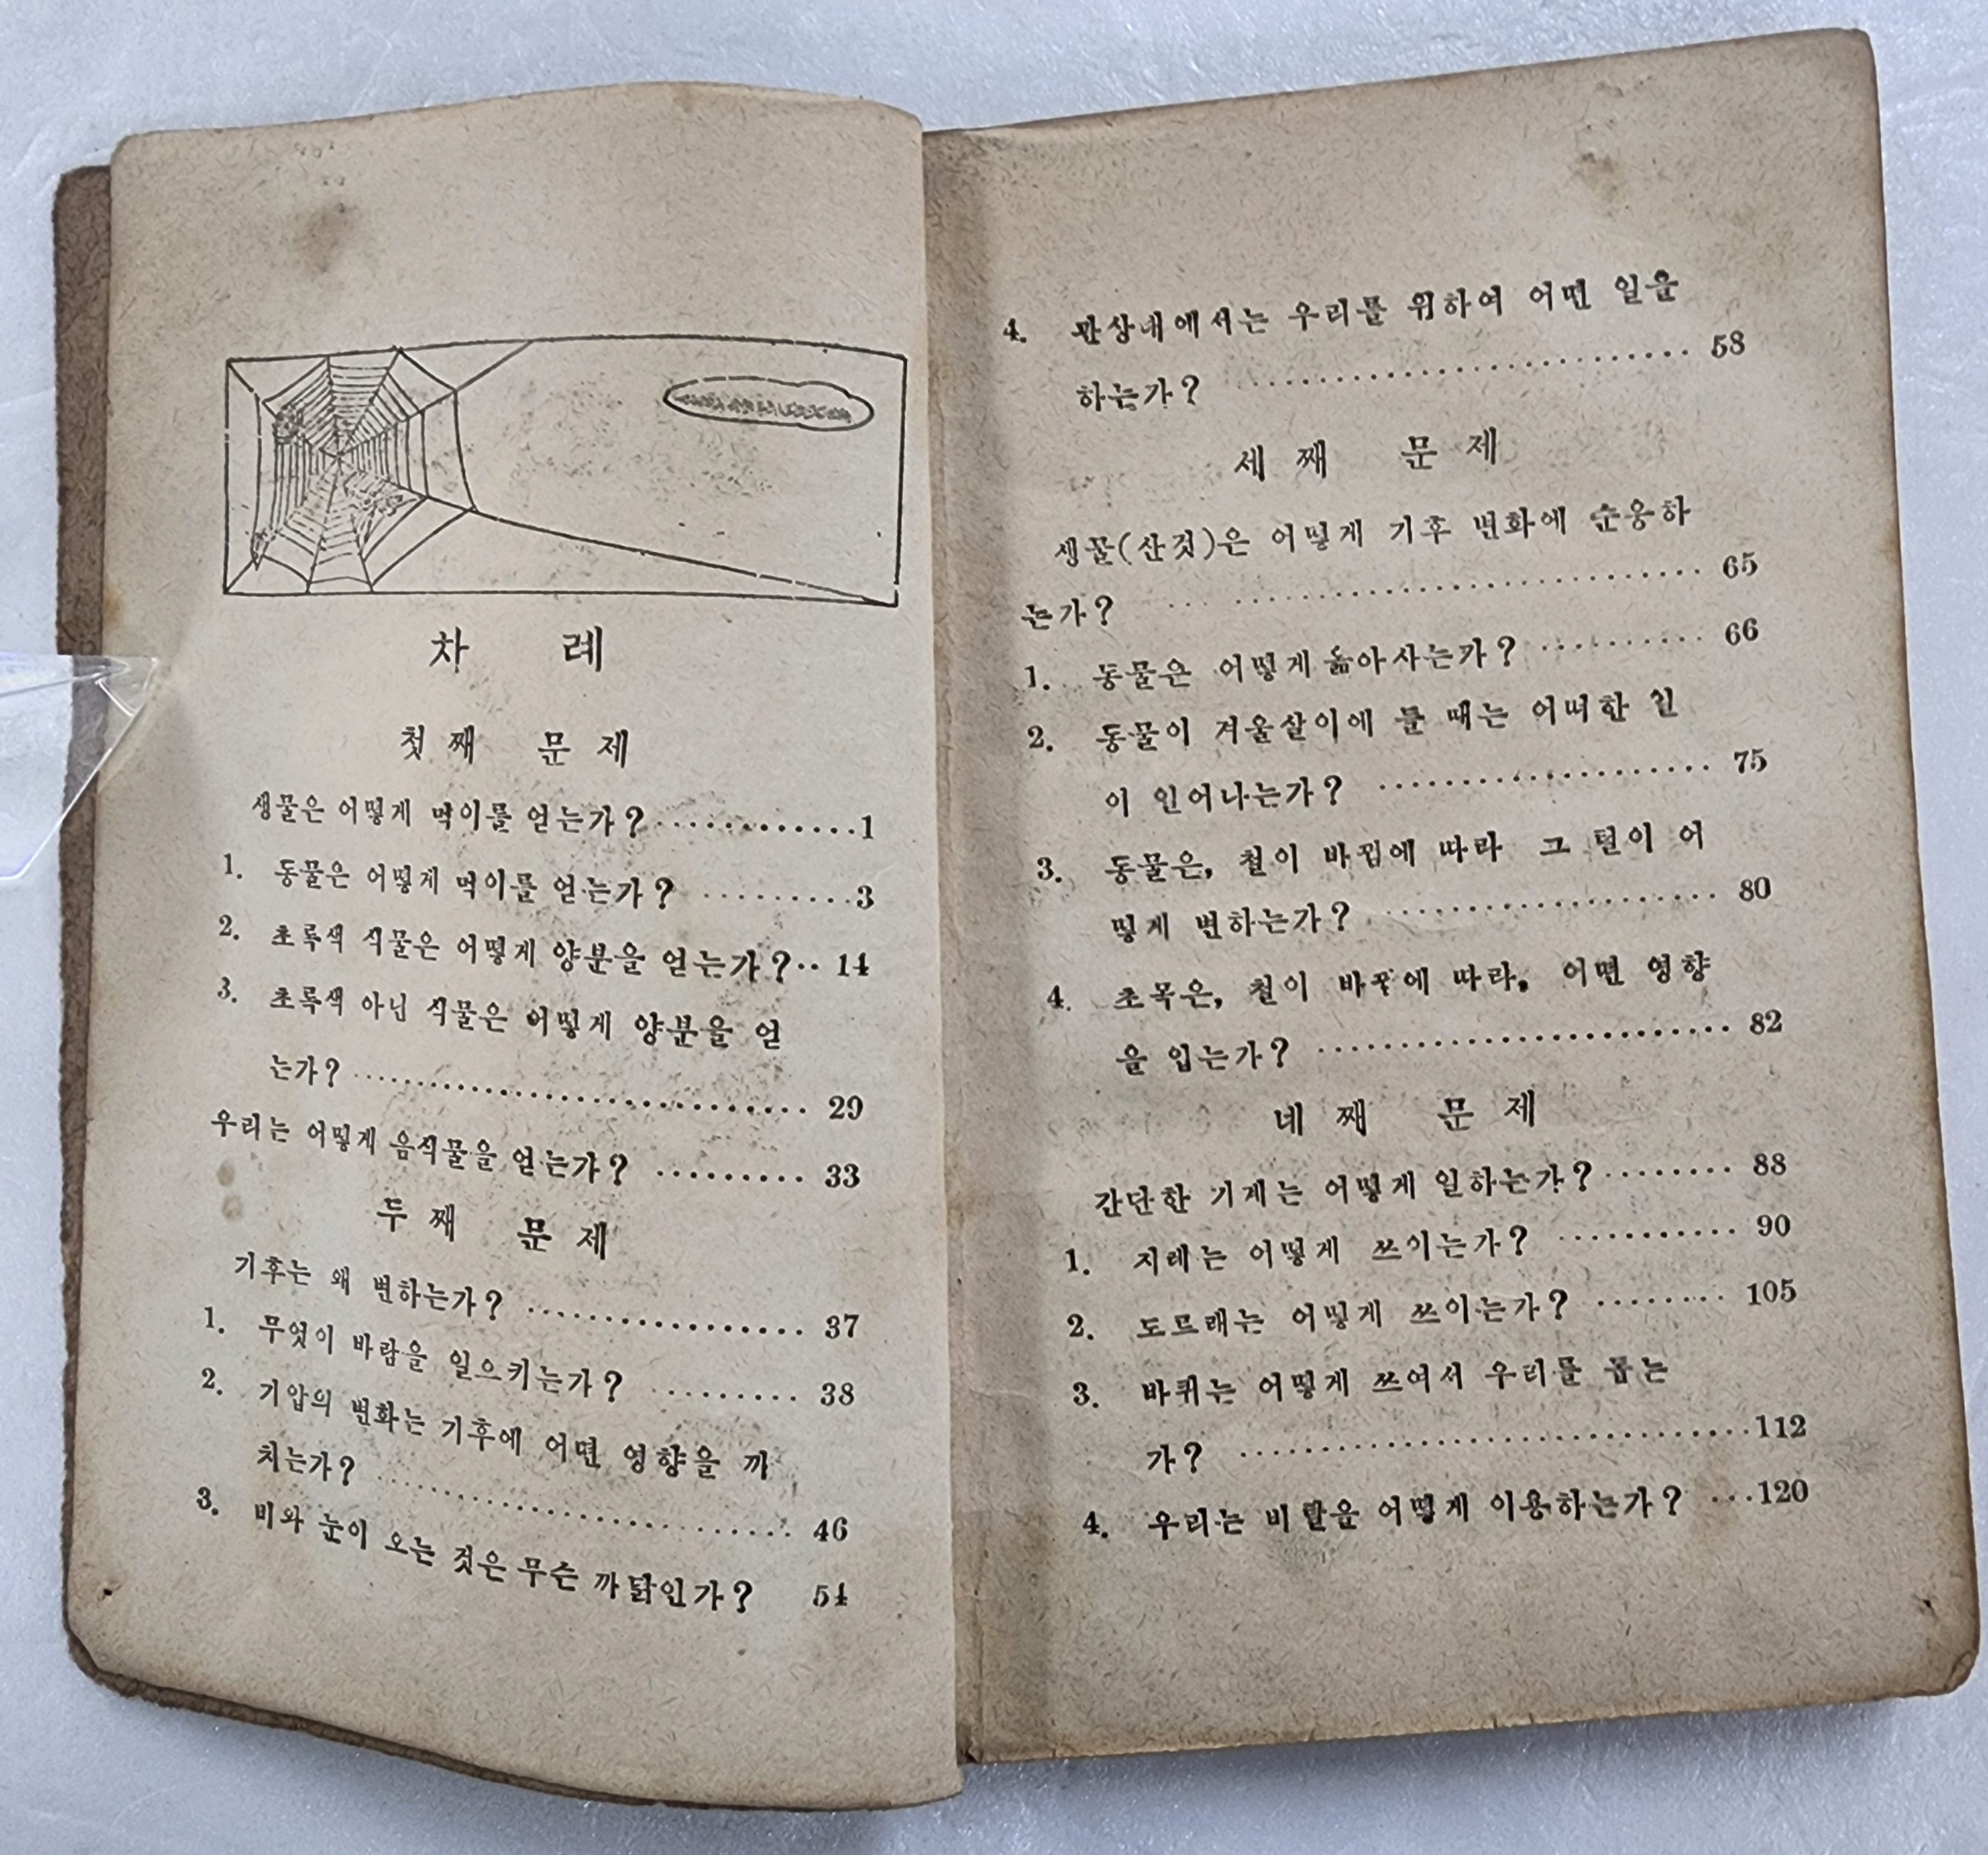 차 례
첫째 문제
생물은 어떻게 먹이를 얻는가? ············1
1. 동물은 어떻게 먹이를 얻는가? ·········3
2. 초록색 식물은 어떻게 양분을 얻는가?·· 14
3. 초록색 아닌 식물은 어떻게 양분을 얻
는가? ···························· 29
우리는 어떻게 음식물을 얻는가? ········· 33
두째 문제
기후는 왜 변하는가? ················· 37
1. 무엇이 바람을 일으키는가? ········· 38
2. 기압의 변화는 기후에 어떤 영향을 끼
치는가? ·························· 46
3. 비와 눈이 오는 것은 무슨 까닭인가? 54
4. 관상대에서는 우리를 위하여 어떤 일을
하는가? ···························· 58
세째 문제
생물(산것)은 어떻게 기후 변화에 순응하
는가? ······························ 65
1. 동물은 어떻게 옮아사는가? ·········· 66
2. 동물이 겨울살이에 들 때는 어떠한 일
이 일어나는가? ···················· 75
3. 동물은, 철이 바뀜에 따라 그 털이 어
떻게 변하는가? ····················· 80
4. 초목은, 철이 바뀜에 따라, 어떤 영향
을 입는가? ························· 82
네째 문제
간단한 기계는 어떻게 일하는가? ········ 88
1. 지레는 어떻게 쓰이는가? ··········· 90
2. 도르래는 어떻게 쓰이는가? ········ 105
3. 바퀴는 어떻게 쓰여서 우리를 돕는
가? ································112
4. 우리는 비탈을 어떻게 이용하는가? ···120